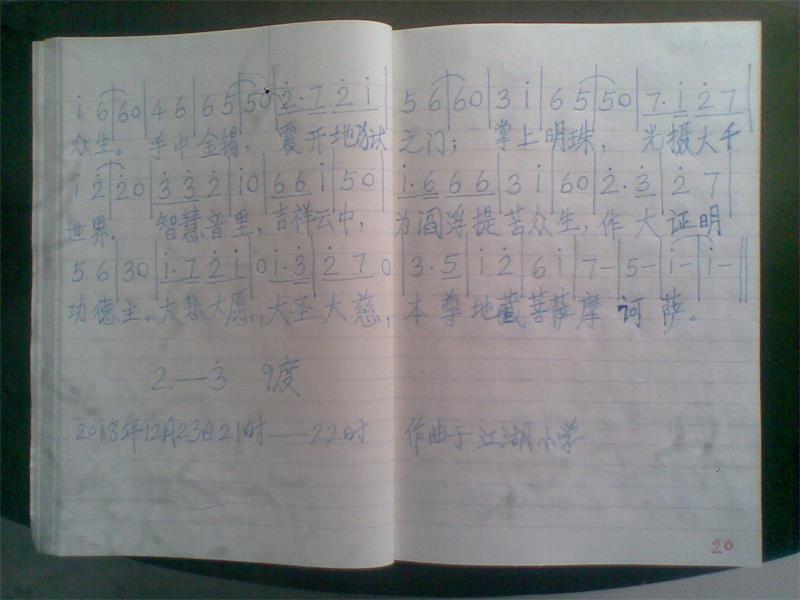 i 6 | 6 0 | 4 6 | 6 5 | 5 0 | 2̇ · 7 2̇ i | 5 6 | 6 0 | 3 i | 6 5 | 5 0 | 7 · i 2̇ 7 |
众生。手中金锡，震开地狱之门；掌上明珠，光摄大千
i 2̇ | 2̇ 0 | 3̇ 3̇ 2̇ | i 0 | 6 6 i | 5 0 | i · 6 6 6 | 3 i | 6 0 | 2̇ · 3̇ | 2̇ 7 |
世界。智慧音里，吉祥云中，为阎浮提苦众生，作大证明
5 6 | 3 0 | i · 7 2̇ i | 0 i · 3̇ | 2̇ 7 0 | 3 · 5 | i 2̇ | 6 i | 7 – | 5 – | i – | i – ‖
功德主。大悲大愿，大圣大慈，本尊地藏菩萨摩诃萨。
2 — 3̇ 9度
2018年12月23日21时——22时 作曲于江湖小学
20